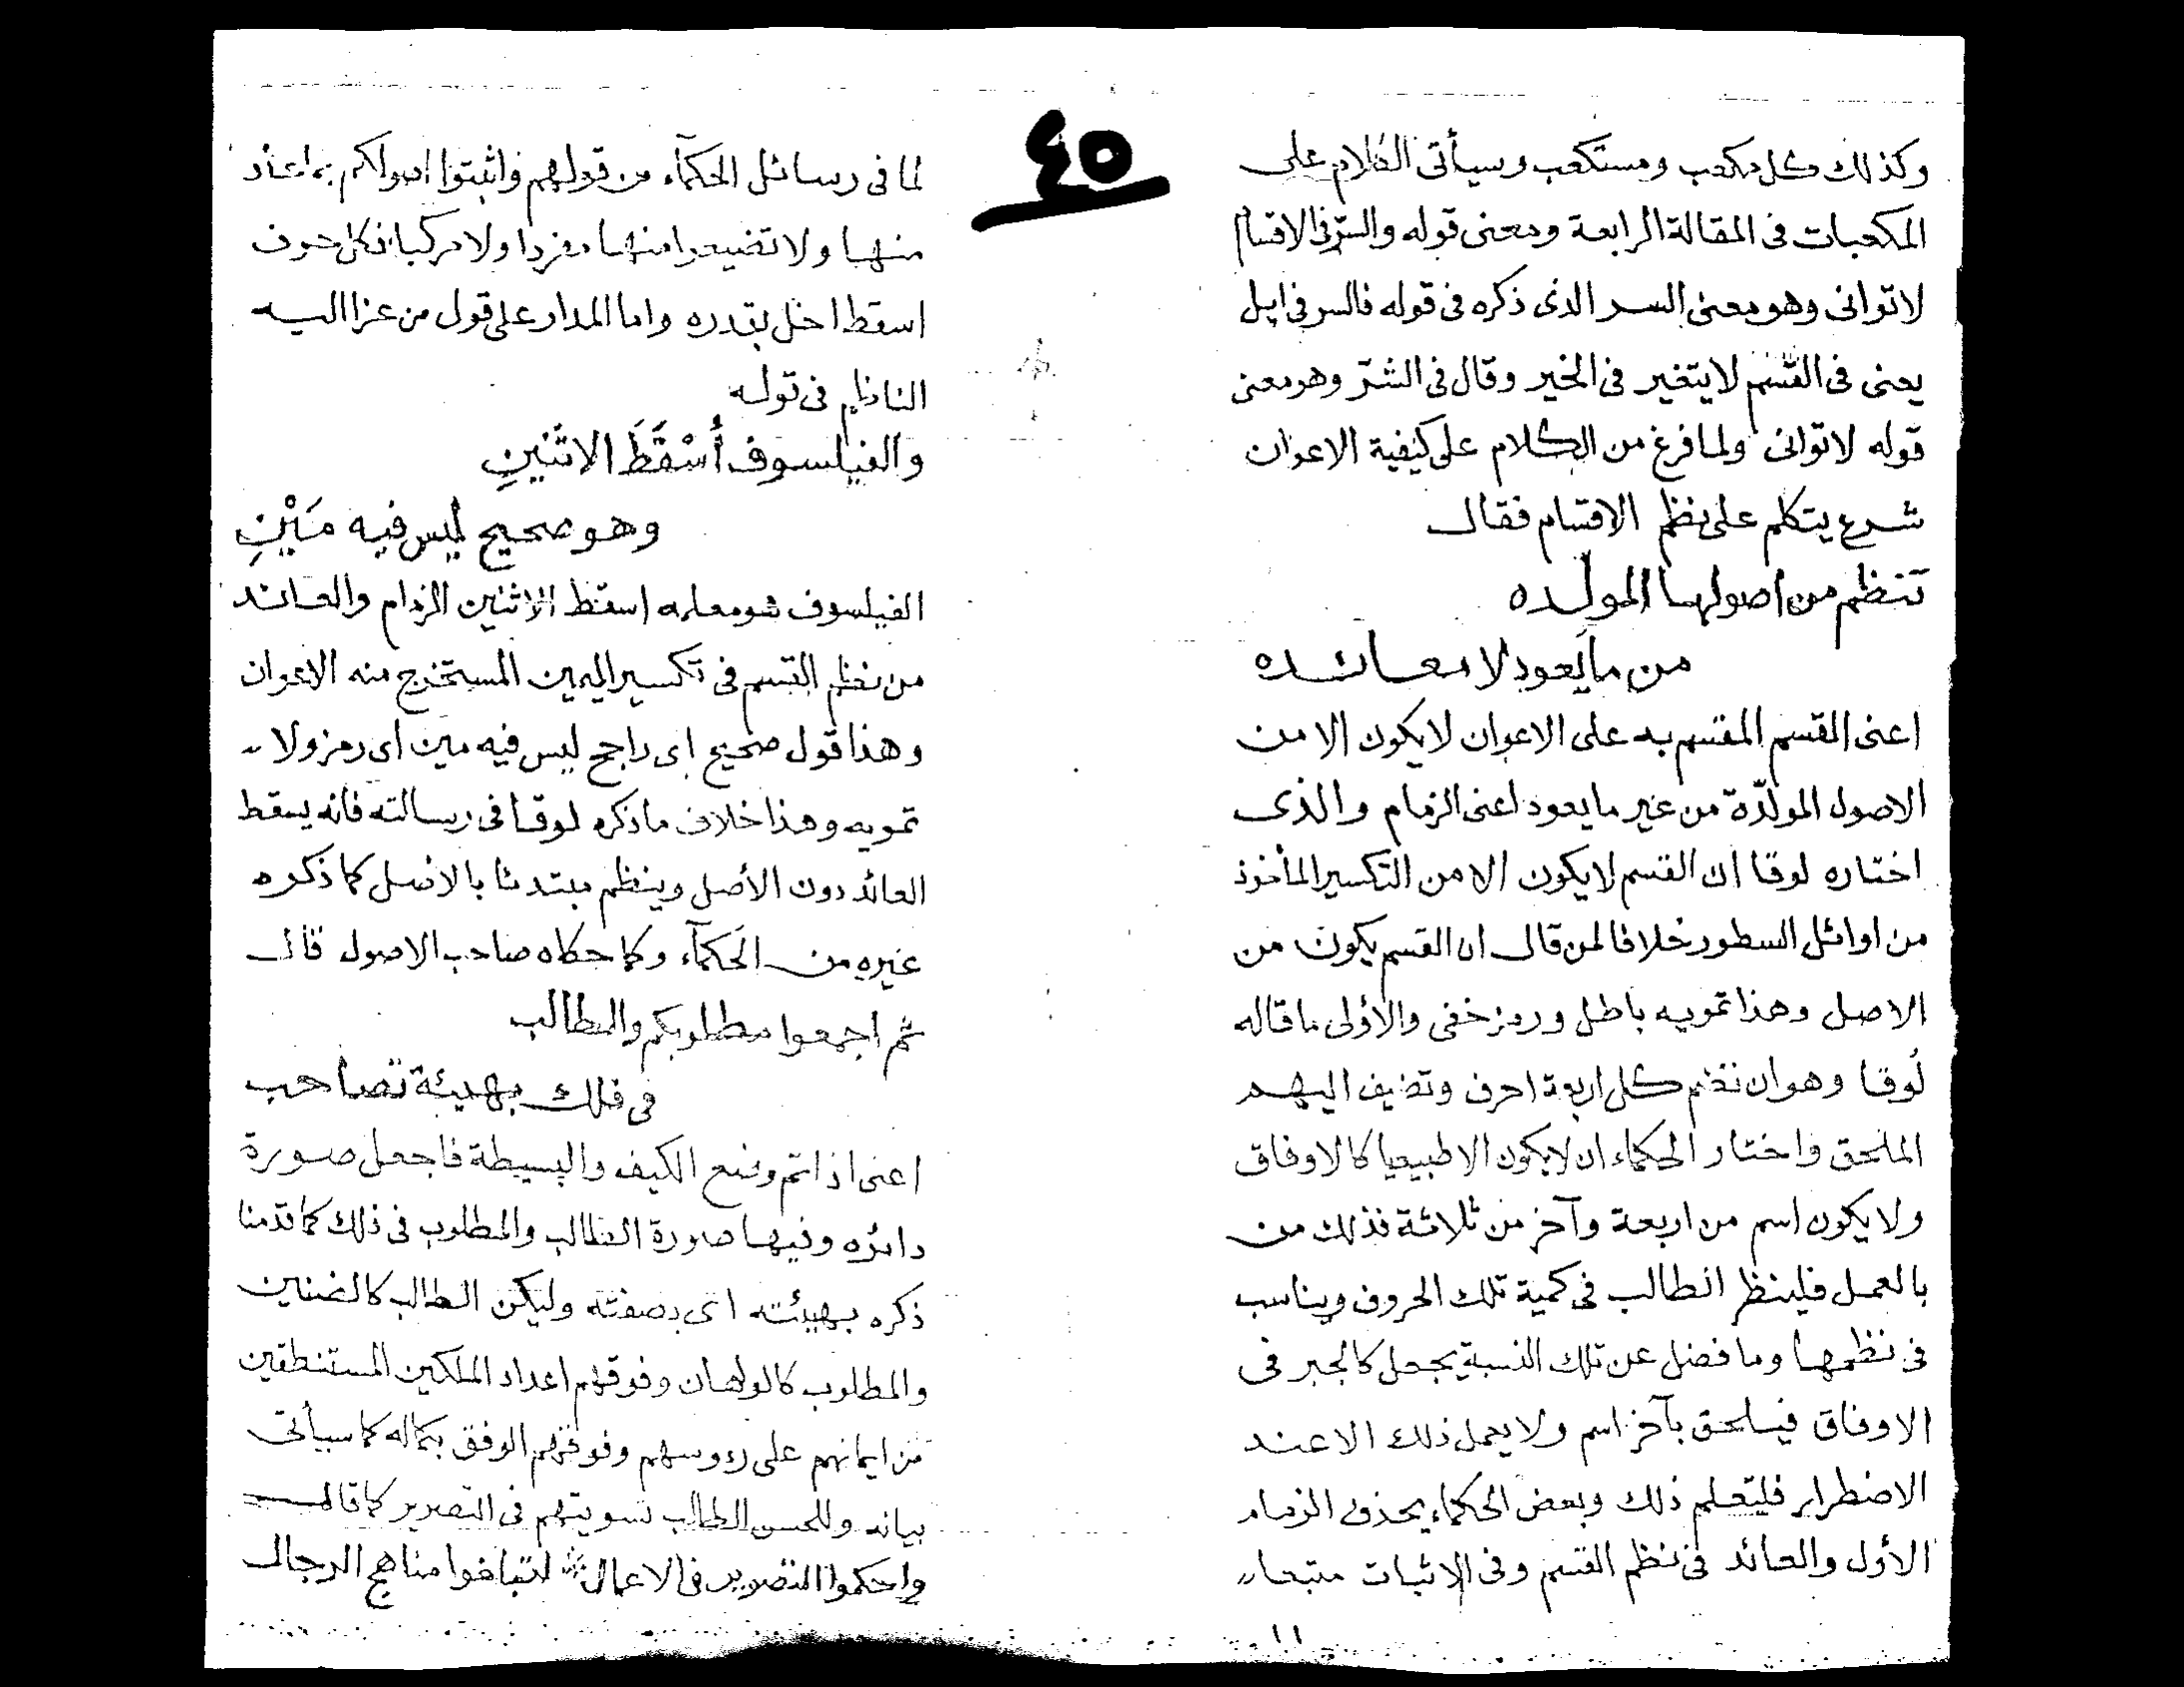 ٤٥
وكذلك كل مكعب ومستكعب وسيأتى الكلام على
المكعبات فى المقالة الرابعة ومعنى قوله والسرّ فى الاقسام
لاتوانى وهو معنى السر الذى ذكره فى قوله فالسر فى ايل
يعنى فى القسم لايتغير فى الخير وقال فى الشرّ وهو معنى
قوله لاتوانى ولما فرغ من الكلام على كيفية الاعوان
شرع يتكلم على نظم الاقسام فقال
تنظم من اصولها المولده
من ما يعود لا معانده
اعنى القسم المقسم به على الاعوان لا يكون الا من
الاصول المولدّة من غير ما يعود اعنى الزمام والذى
اختاره لوقا ان القسم لايكون الا من التكسير المأخوذ
من اوائل السطور خلافا لمن قال ان القسم يكون من
الاصل وهذا تمويه باطل ورمز خفى والأولى ما قاله
لُوقا وهو ان تنظم كل اربعة احرف وتضيف اليهم
الملحق واختار الحكماء ان لا يكون الا طبيعيا كالاوفاق
ولا يكون اسم من اربعة وآخر من ثلاثة فذلك من
بالعمل فلينظر الطالب فى كمية تلك الحروف ويناسب
فى نظمها وما فضل عن تلك النسبة يجعل كالجبر فى
الاوفاق فيلحق بآخر اسم ولا يعمل ذلك الا عند
الاضطرار فليتعلم ذلك وبعض الحكماء يحذف الزمام
الأول والعائد فى نظم القسم وفى الاثبات متبعا
لما فى رسائل الحكمآء من قولهم واثبتوا اصولكم بما عند
منها ولا تضيعوا منها مفردا ولا مركبا فكل حرف
اسقط اخل بقدره واما المدار على قول من عزا اليه
الناظم فى قوله
والفيلسوف أَسْقَطَ الاثنينِ
وهو صحيح ليس فيه مَيْنِ
الفيلسوف هو معلمه اسقط الاثنين الزمام والعائد
من نظم القسم فى تكسير اليمين المستخرج منه الاعوان
وهذا قول صحيح اى راجح ليس فيه مين اى رمز ولا
تمويه وهذا خلاف ما ذكره لوقا فى رسالته فانه يسقط
العائد دون الأصل وينظم مبتدئا بالاصل كما ذكره
غيره من الحكمآء وكما حكاه صاحب الاصول قال
ثم اجمعوا مطلوبكم والطالب
فى فلك بهيئة تصاحب
اعنى اذا تم وضع الكيف والبسيطة فاجعل صورة
دائره وفيها صورة الطالب والمطلوب فى ذلك كما قدمنا
ذكره بهيئته اى بصفته وليكن الطالب كالضنين
والمطلوب كالولهان وفوقهم اعداد الملكين المستنطقين
من ايمانهم على رءوسهم وفوقهم الوفق بكماله كما سيأتى
بيانه وللحسن الطالب تسويتهم فى التصوير كما قال
واحكموا التصوير فى الاعمال لتبلغوا مناهج الرجال